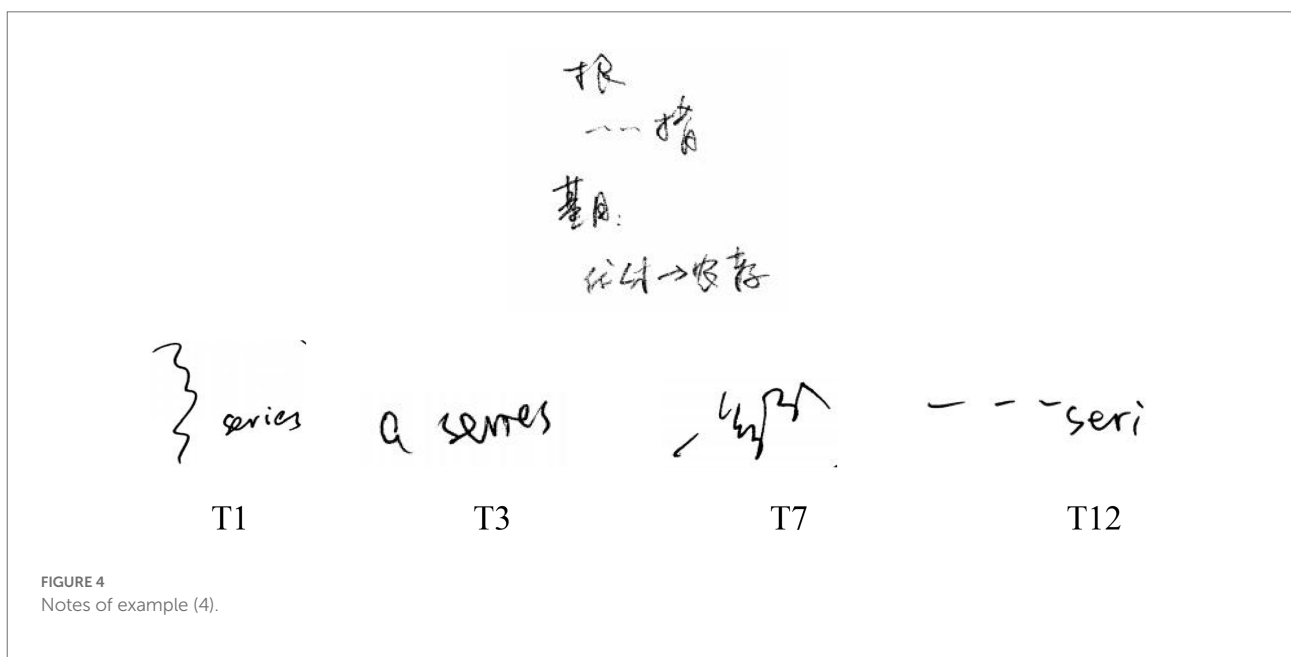 根
---- 措
基目:
优付→农存
series
a series
一系列
--- seri
T1 T3 T7 T12
FIGURE 4
Notes of example (4).